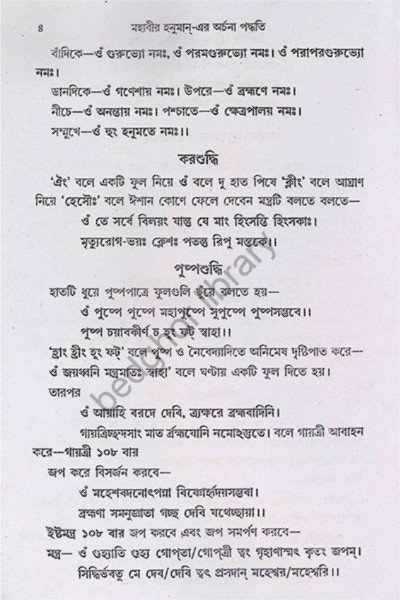 ৪ মহাবীর হনুমান্-এর অর্চনা পদ্ধতি
বাঁদিকে—ওঁ গুরুভ্যো নমঃ, ওঁ পরমগুরুভ্যো নমঃ। ওঁ পরাপরগুরুভ্যো
নমঃ।
ডানদিকে—ওঁ গণেশায় নমঃ। উপরে—ওঁ ব্রহ্মণে নমঃ।
নীচে—ওঁ অনন্তায় নমঃ। পশ্চাতে—ওঁ ক্ষেত্রপালায় নমঃ।
সম্মুখে—ওঁ হুং হনুমতে নমঃ।।
করশুদ্ধি
‘ঐং’ বলে একটি ফুল নিয়ে ওঁ বলে দু হাত পিষে ‘ক্লীং’ বলে আঘ্রাণ
নিয়ে ‘হেসৌঃ’ বলে ঈশান কোণে ফেলে দেবেন মন্ত্রটি বলতে বলতে—
ওঁ তে সর্বে বিলয়ং যান্তু যে মাং হিংসন্তি হিংসকাঃ।
মৃত্যুরোগ-ভয়ঃ ক্লেশঃ পতন্তু রিপু মস্তকে।।
পুষ্পশুদ্ধি
হাতটি ধুয়ে পুষ্পপাত্রে ফুলগুলি ছুঁয়ে বলতে হয়—
ওঁ পুষ্পে পুষ্পে মহাপুষ্পে সুপুষ্পে পুষ্পসম্ভবে।।
পুষ্প চয়াবকীর্ণ চ হুং ফট্ স্বাহা।।
‘হ্রাং হ্রীং হুং ফট্’ বলে পুষ্প ও নৈবেদ্যাদিতে অনিমেষ দৃষ্টিপাত করে—
ওঁ জয়ধ্বনি মন্ত্রমাতঃ স্বাহা’ বলে ঘণ্টায় একটি ফুল দিতে হয়।
তারপর
ওঁ আয়াহি বরদে দেবি, ত্র্যক্ষরে ব্রহ্মবাদিনি।
গায়ত্রিচ্ছন্দসাং মাত র্ব্রহ্মযোনি নমোঽস্তুতে। বলে গায়ত্রী আবাহন
করে—গায়ত্রী ১০৮ বার
জপ করে বিসর্জন করবে—
ওঁ মহেশবদনোৎপন্না বিষ্ণোর্হৃদয়সম্ভবা।
ব্রহ্মণা সমনুজ্ঞাতা গচ্ছ দেবি যথেচ্ছয়া।।
ইষ্টমন্ত্র ১০৮ বার জপ করবে এবং জপ সমর্পণ করবে—
মন্ত্র— ওঁ গুহ্যাতি গুহ্য গোপ্তা/গোপ্ত্রী ত্বং গৃহাণাস্মৎ কৃতং জপম্।
সিদ্ধির্ভবতু মে দেব/দেবি ত্বৎ প্রসাদান্ মহেশ্বর/মহেশ্বরি।।
bedghor library